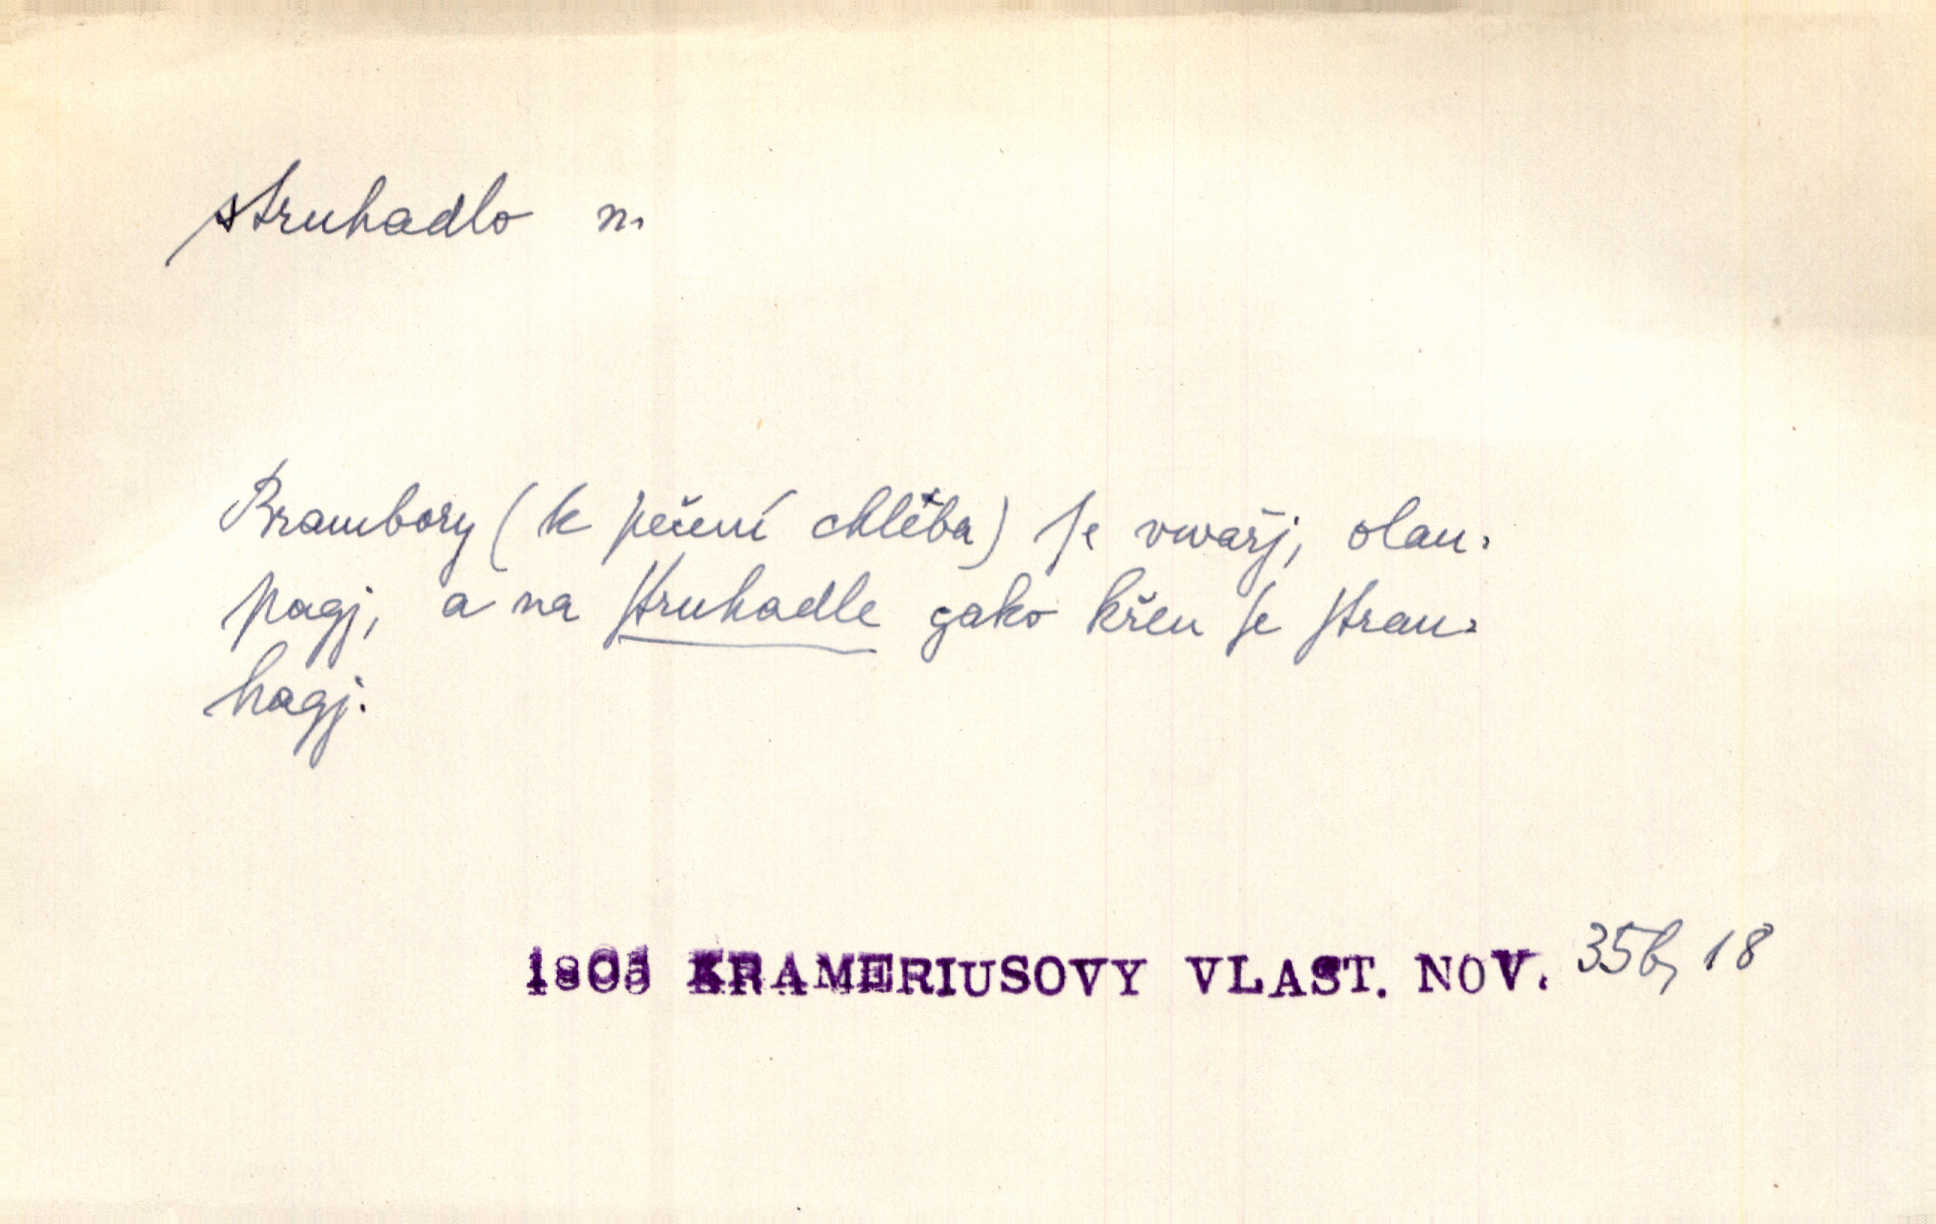 struhadlo n.
Brambory (k pečení chlěba) ſe vwařj, olau-
pagj, a na ſtruhadle gako křen ſe ſtrau-
hagj.
1805 KRAMERIUSOVY VLAST. NOV. 35b, 18